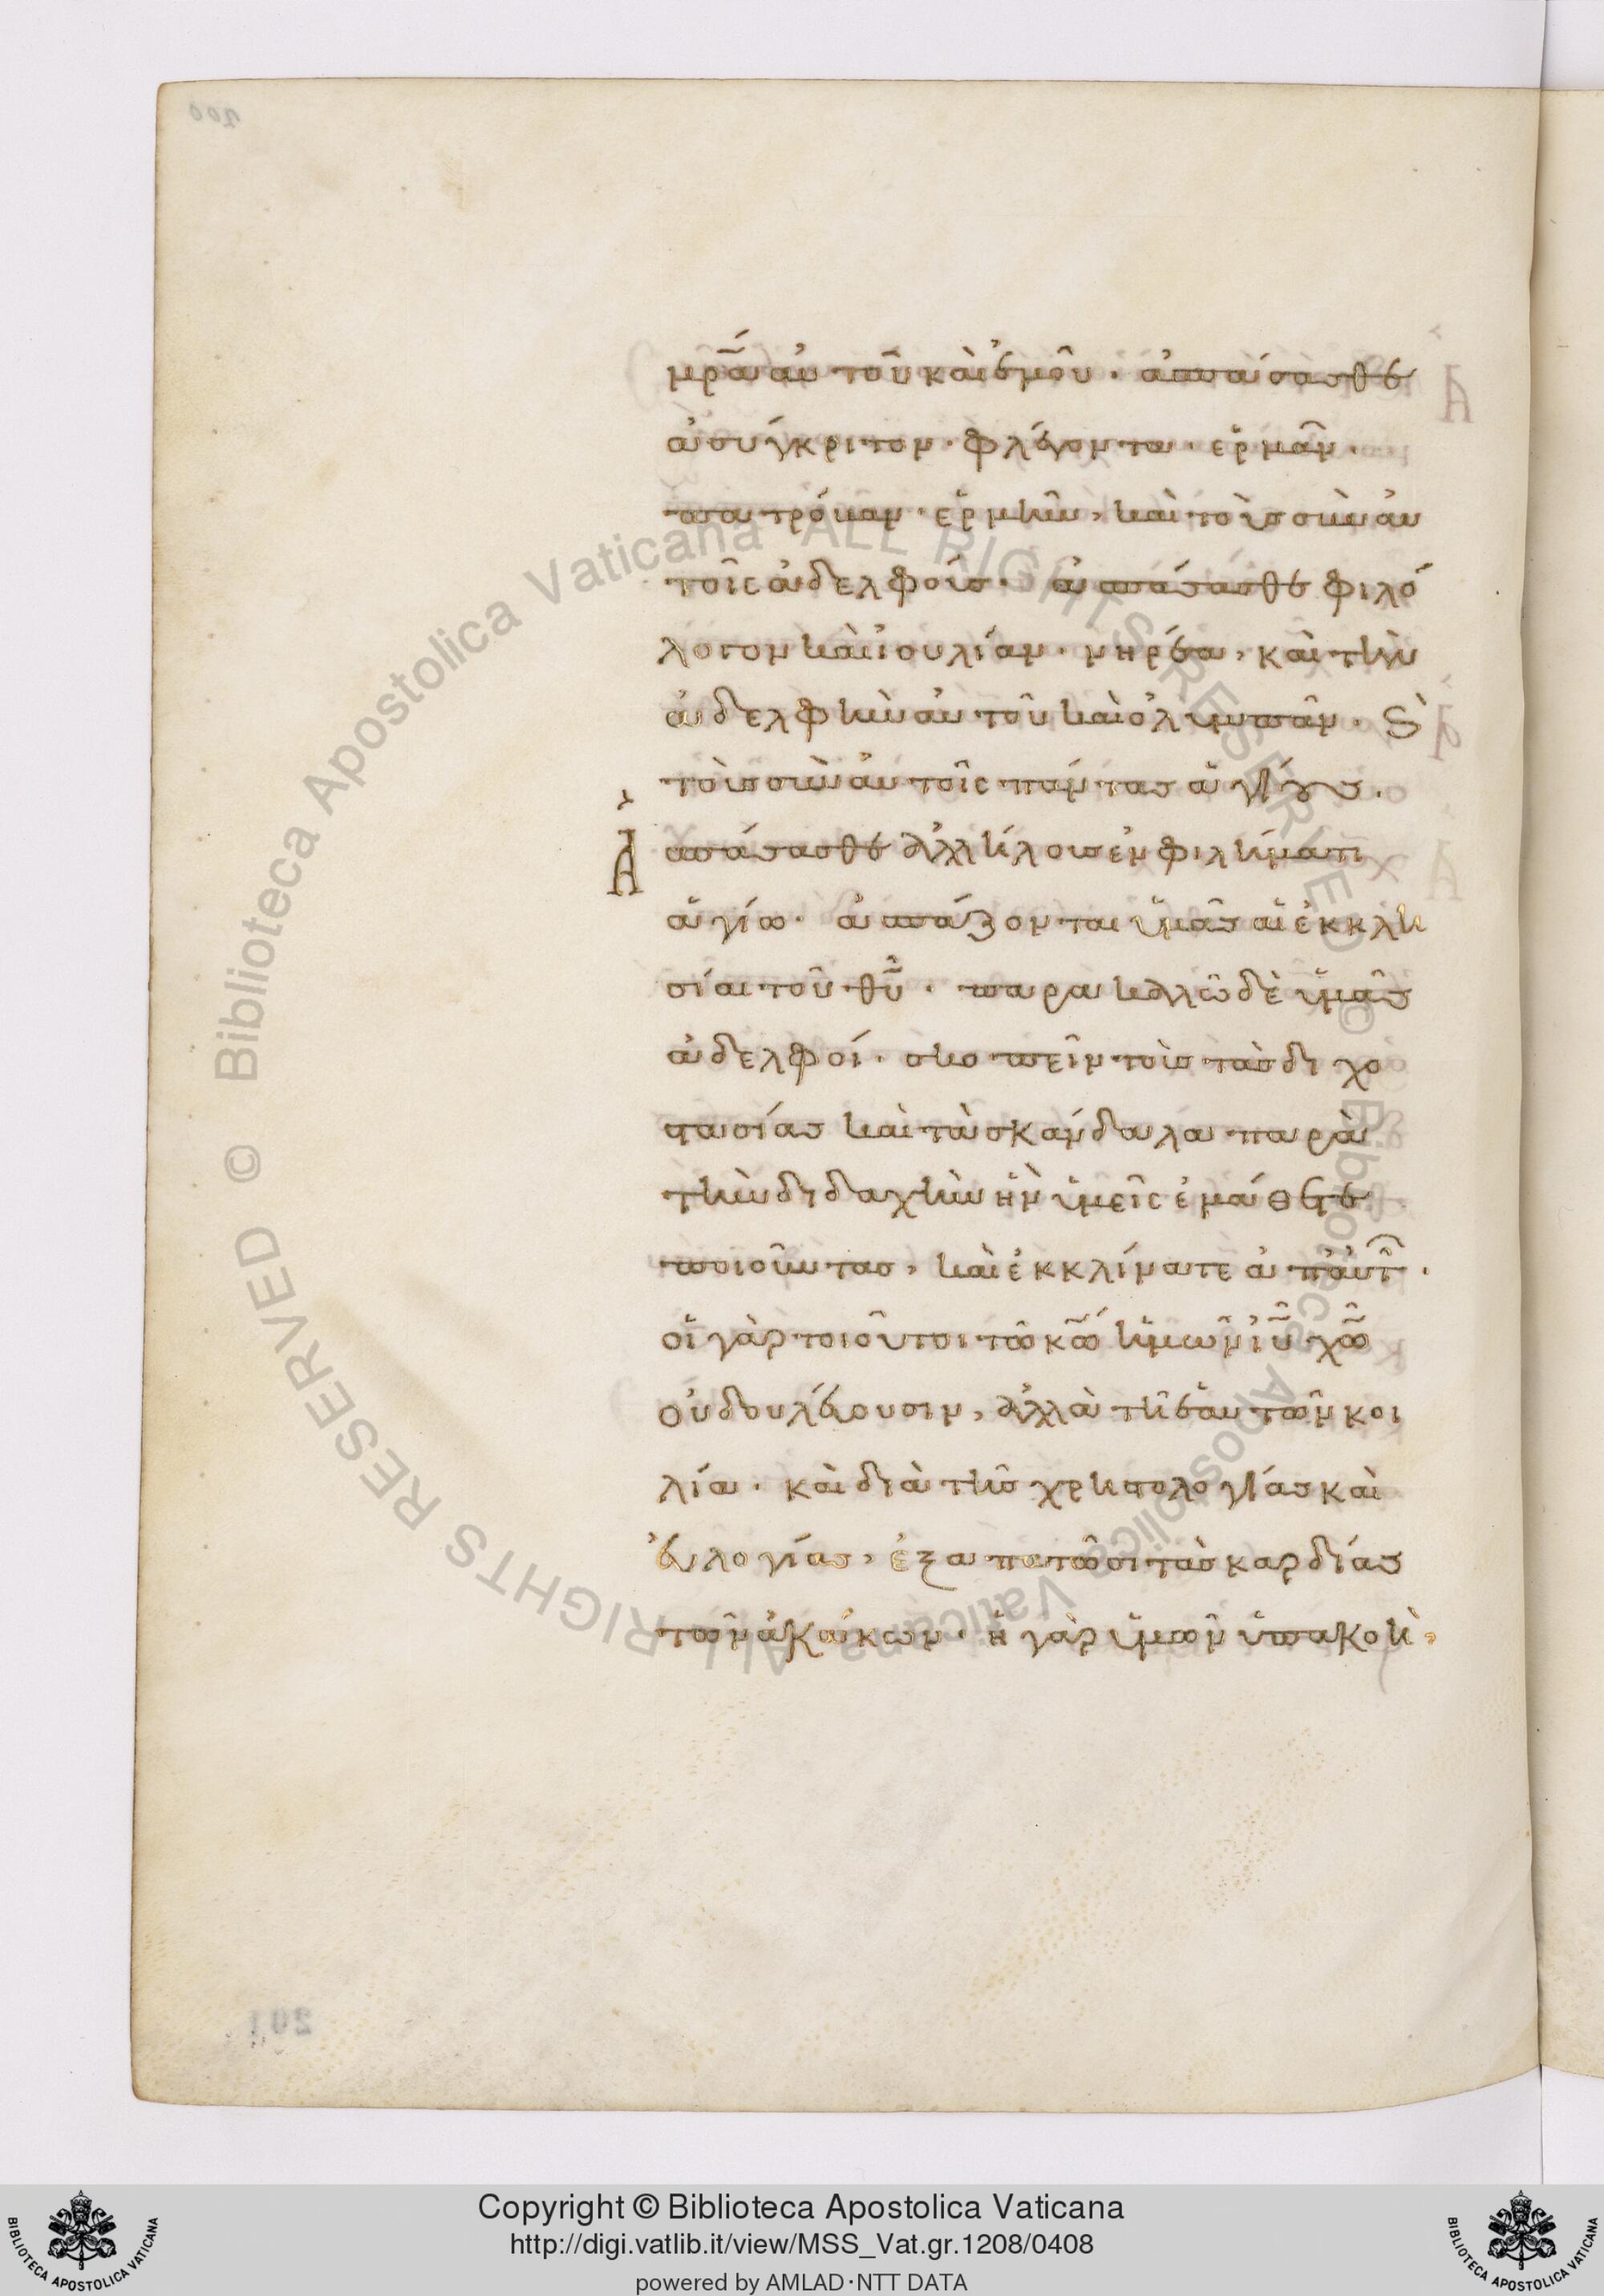 200
μρ̅α αὐτοῦ καὶ ἐμοῦ· ἀσπάσασθε
ἀσύγκριτον· φλέγοντα· ἑρμᾶν·
πατρόβαν· ἑρμῆν, καὶ τοὺς σὺν αὐ
τοῖς ἀδελφούς· ἀσπάσασθε φιλό
λογον καὶ ἰουλίαν· νηρέα, καὶ τὴν
ἀδελφὴν αὐτοῦ καὶ ὀλυμπᾶν· ϛ̀
τοὺς σὺν αὐτοῖς πάντας ἁγίους·
Ἀσπάσασθε ἀλλήλους ἐν φιλήματι
ἁγίω· ἀσπάζονται ὑμᾶς αἱ ἐκκλη
σίαι τοῦ θυ̅· παρακαλῶ δὲ ὑμᾶς
ἀδελφοί· σκοπεῖν τοὺς τὰς διχο
στασίας καὶ τὰ σκάνδαλα παρὰ
τὴν διδαχὴν ἣν ὑμεῖς ἐμάθετε
ποιοῦντας, καὶ ἐκκλίνατε ἀπ' αὐτ̑·
οἱ γὰρ τοιοῦτοι τῶ κω̅ ἡμῶν ἰυ̅ χω̅
οὐ δουλεύουσιν, ἀλλὰ τῆ ἑαυτῶν κοι
λία· καὶ διὰ τῆς χρηστολογίας καὶ
εὐλογίας, ἐξαπατῶσι τὰς καρδίας
τῶν ἀκάκων· ἡ γὰρ ὑμῶν ὑπακοὴ,
201
© Biblioteca Apostolica Vaticana ALL RIGHTS RESERVED © Biblioteca Apostolica Vaticana ALL RIGHTS RESERVED
Copyright © Biblioteca Apostolica Vaticana
http://digi.vatlib.it/view/MSS_Vat.gr.1208/0408
powered by AMLAD·NTT DATA
BIBLIOTECA APOSTOLICA VATICANA
BIBLIOTECA APOSTOLICA VATICANA